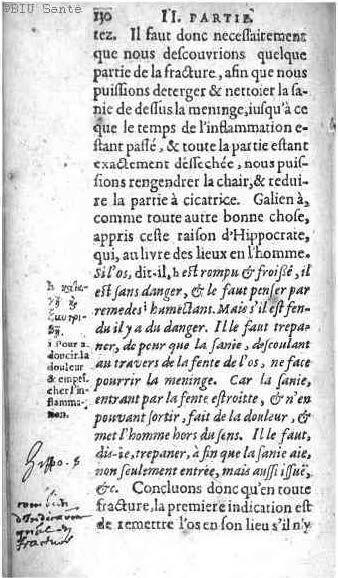 ©BIU Santé
130 II. PARTIE
tez. Il faut donc necessairement
que nous descouvrions quelque
partie de la fracture, afin que nous
puissions deterger & nettoier la sa-
nie de dessus la meninge, iusqu'à ce
que le temps de l'inflammation e-
stant passé, & toute la partie estant
exactement dessechée, nous puis-
sions rengendrer la chair, & redui-
re la partie à cicatrice. Galien à,
comme toute autre bonne chose,
appris ceste raison d'Hippocrate,
qui, au livre des lieux en l'homme.
Si l'os, dit-il, h est rompu & froissé, il
est sans danger, & le faut penser par
remedes i humectant. Mais s'il est fen-
du il y a du danger. Il le faut trepa-
ner, de peur que la sanie, descoulant
au travers de la fente de l'os, ne face
pourrir la meninge. Car la sanie,
entrant par la fente estroitte, & n'en
pouvant sortir, fait de la douleur, &
met l'homme hors du sens. Il le faut,
dis-ie, trepaner, à fin que la sanie aie,
non seulement entrée, mais aussi issuë,
&c. Concluons donc qu'en toute
fracture, la premiere indication est
de remettre l'os en son lieu s'il n'y
i Pour a-
doucir la
douleur
& empes-
cher l'in-
flamma-
tion.